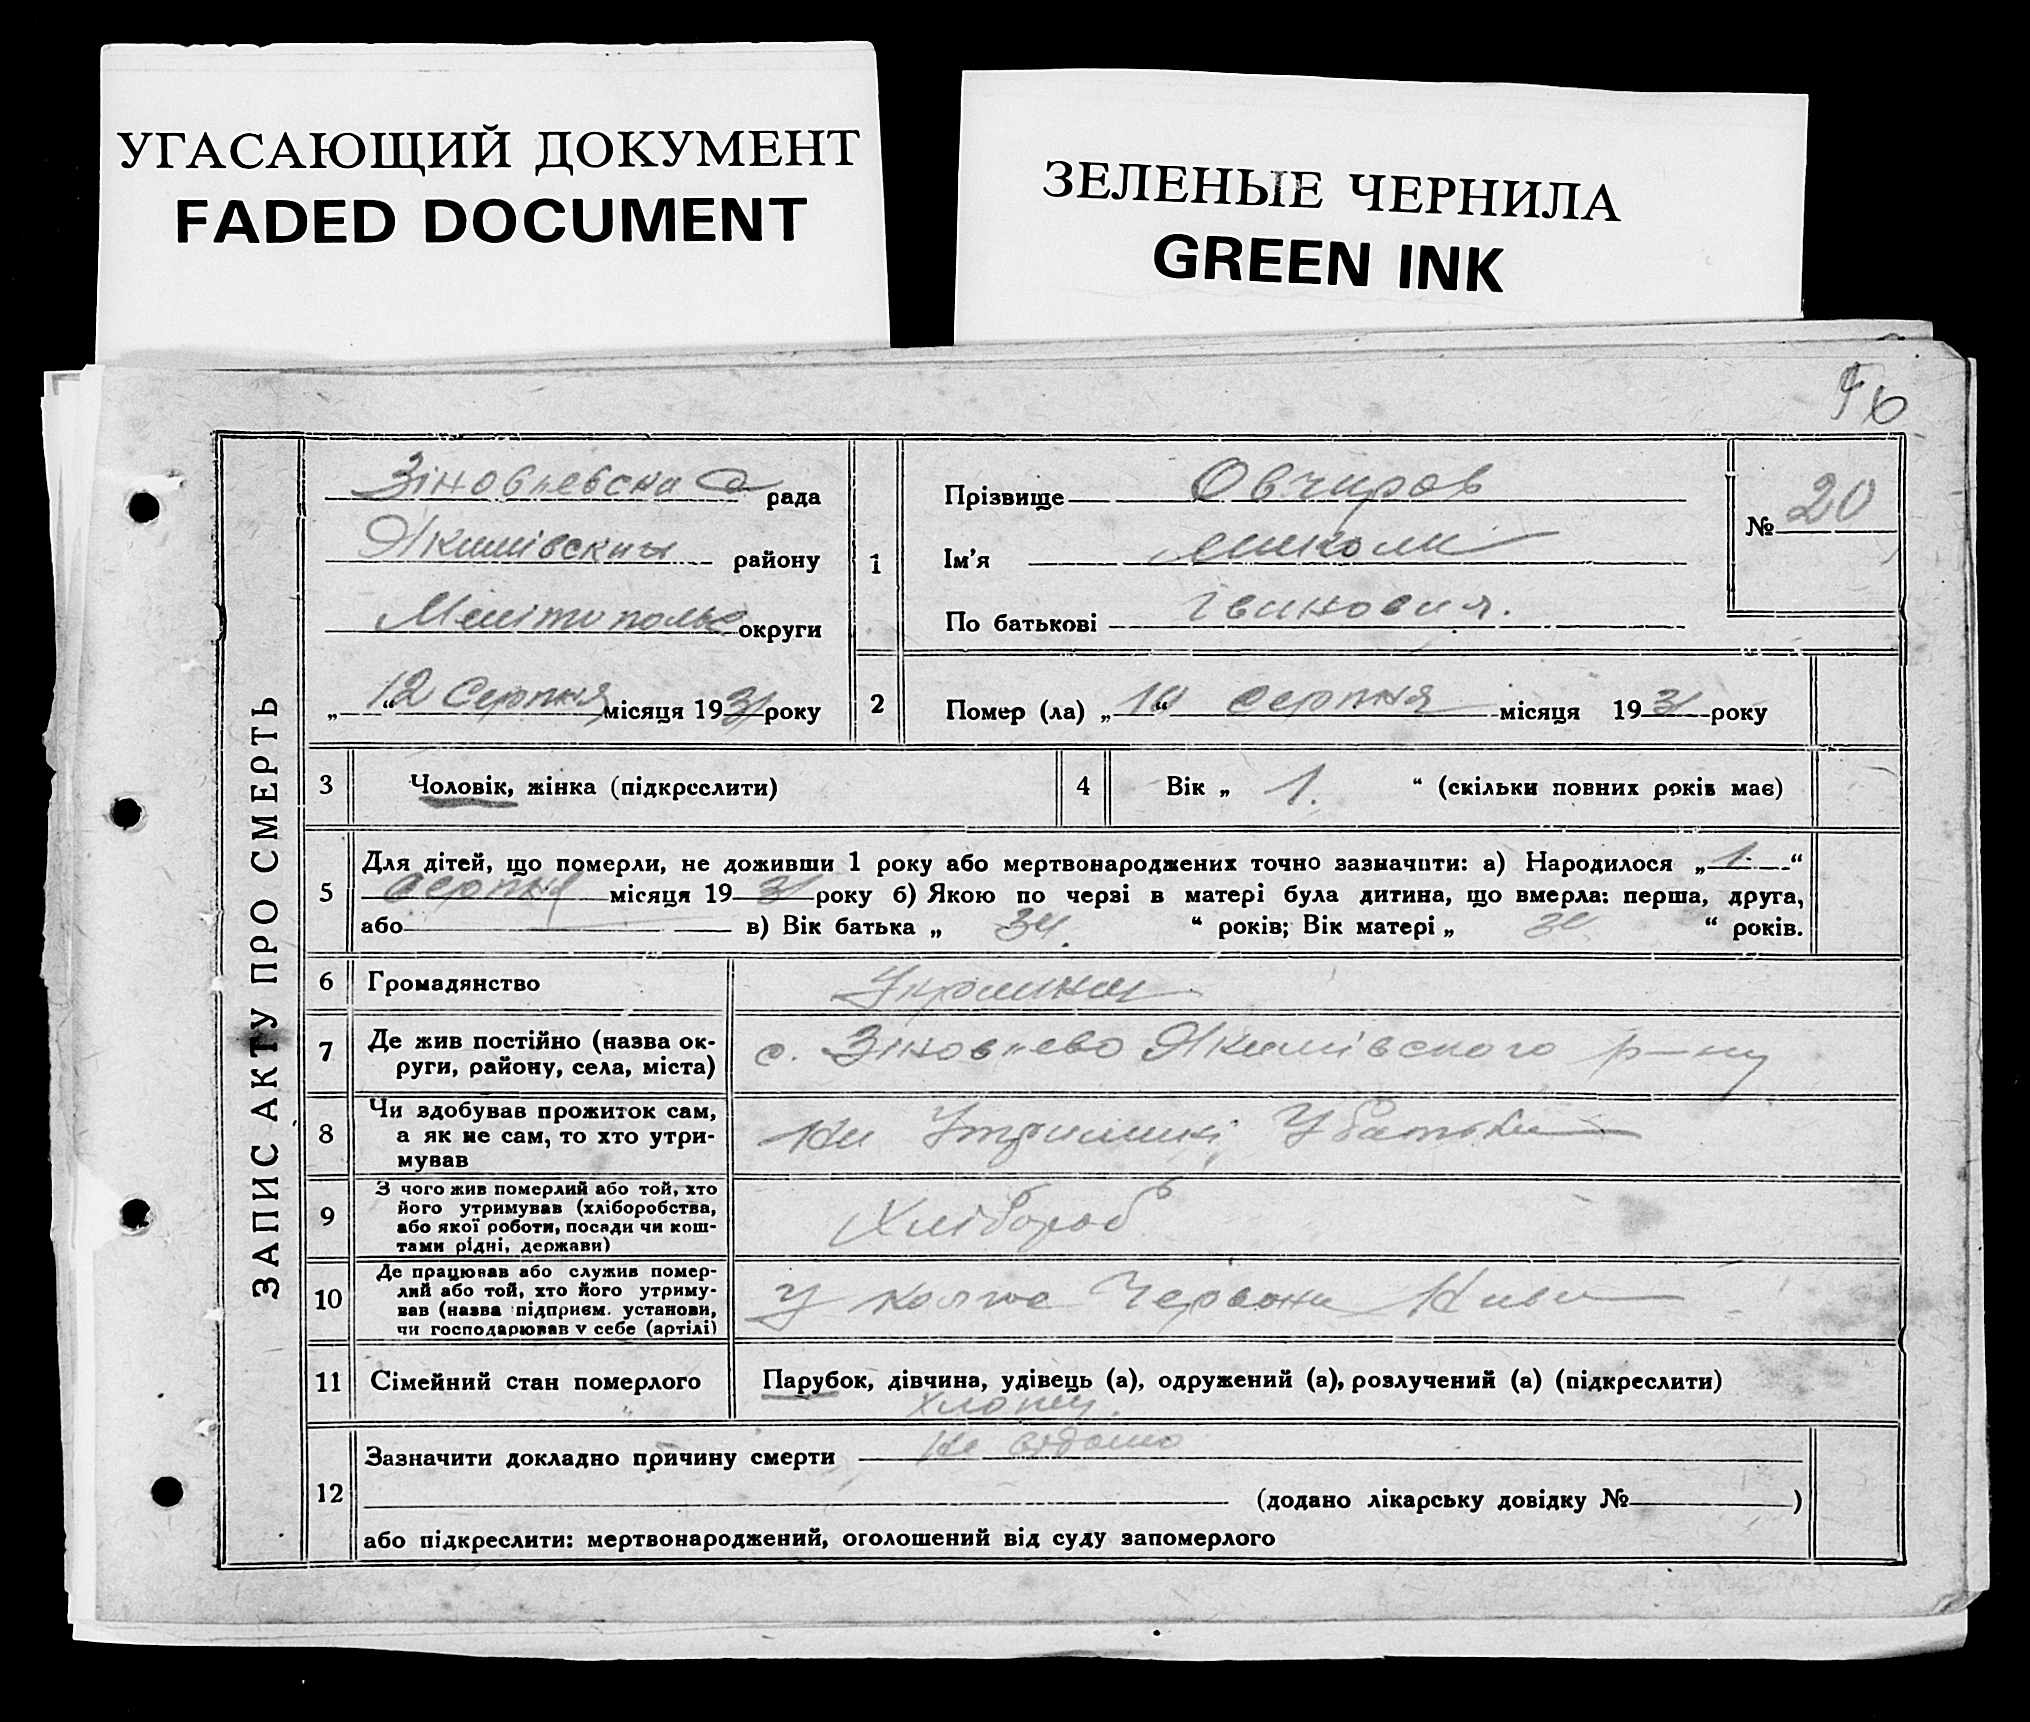 УГАСАЮЩИЙ ДОКУМЕНТ
FADED DOCUMENT
ЗЕЛЕНЫЕ ЧЕРНИЛА
GREEN INK
ЗАПИС АКТУ ПРО СМЕРТЬ
рада
району
округи
„12“ Серпня місяця 1931 року
1
Прізвище Овчиров
Ім'я Миколи
По батькові
№ 20
2
Помер (ла) „10“ серпня місяця 1931 року
3
Чоловік, жінка (підкреслити)
4
Вік „ 1. “ (скільки повних років має)
5
Для дітей, що померли, не доживши 1 року або мертвонароджених точно зазначити: а) Народилося „1.“
серпня місяця 1931 року б) Якою по черзі в матері була дитина, що вмерла: перша, друга,
або в) Вік батька „ “ років; Вік матері „ “ років.
6
Громадянство
7
Де жив постійно (назва ок-
руги, району, села, міста)
с. Зіновиево Якимівского р-ну
8
Чи здобував прожиток сам,
а як не сам, то хто утри-
мував
На У батька
9
З чого жив померлий або той, хто
його утримував (хліборобства,
або якої роботи, посади чи кош-
тами рідні, держави)
Хлібороб
10
Де працював або служив помер-
лий або той, хто його утриму-
вав (назва підприєм. установи,
чи господарював у себе (артілі)
У Червона Нива
11
Сімейний стан померлого
Парубок, дівчина, удівець (а), одружений (а), розлучений (а) (підкреслити)
Хлопец.
12
Зазначити докладно причину смерти Не відомо
(додано лікарську довідку № )
або підкреслити: мертвонароджений, оголошений від суду запомерлого